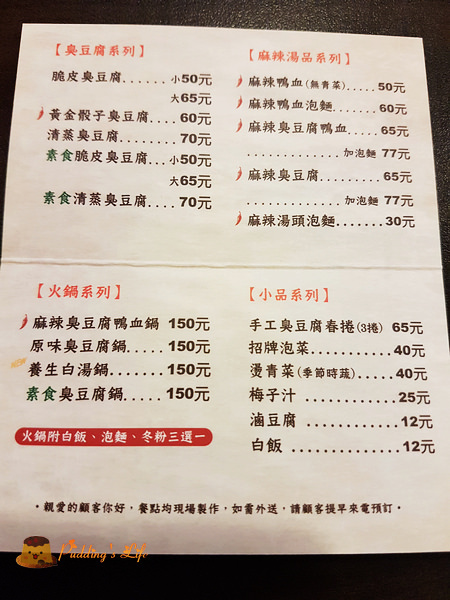 【臭豆腐系列】
脆皮臭豆腐......小50元
大65元
黃金骰子臭豆腐....60元
清蒸臭豆腐........70元
素食脆皮臭豆腐...小50元
大65元
素食清蒸臭豆腐....70元
【麻辣湯品系列】
麻辣鴨血(無青菜).....50元
麻辣鴨血泡麵.......60元
麻辣臭豆腐鴨血.....65元
..............加泡麵 77元
麻辣臭豆腐.........65元
..............加泡麵 77元
麻辣湯頭泡麵.......30元
【火鍋系列】
麻辣臭豆腐鴨血鍋 150元
原味臭豆腐鍋.....150元
NEW
養生白湯鍋.......150元
素食臭豆腐鍋.....150元
火鍋附白飯、泡麵、冬粉三選一
【小品系列】
手工臭豆腐春捲(3捲) 65元
招牌泡菜..........40元
燙青菜(季節時蔬).....40元
梅子汁 ...........25元
滷豆腐 ...........12元
白飯 .............12元
・親愛的顧客你好，餐點均現場製作，如需外送，請顧客提早來電預訂・
Pudding's Life